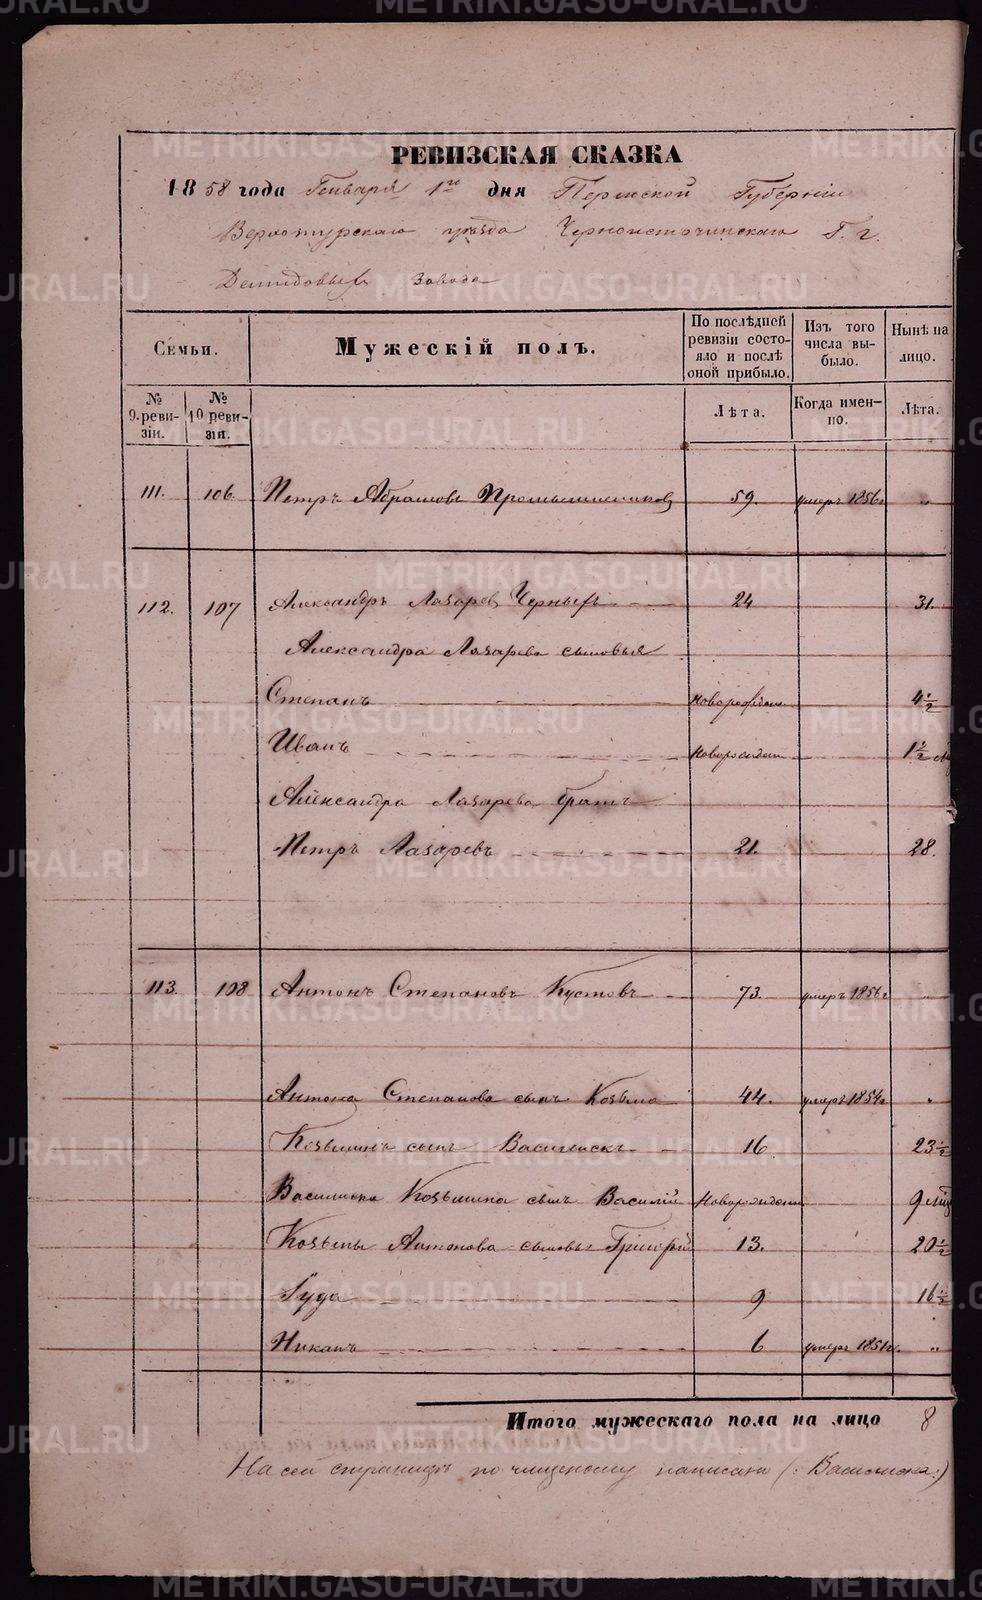 РЕВИЗСКАЯ СКАЗКА
1858 года Генваря 1го дня Пермской Губернiи
Верхотурскаго уѣзда Черноисточинскаго Г. г.
Демидовыхъ завода
Семьи.
Мужескiй полъ.
По послѣдней ревизiи состояло и послѣ оной прибыло.
Изъ того числа выбыло.
Нынѣ на лицо.
№ 9. ревизiи.
№ 10 ревизiи.
Лѣта.
Когда именно.
Лѣта.
111. 106. Петръ Абрамовъ Промышленниковъ 59. умеръ 1856г „
112. 107 Александръ Лазаревъ Черныхъ 24 31.
Александра Лазарева сыновья
Степанъ новорожден. 4 1/2
Иванъ новорожден 1 1/2
Александра Лазарева братъ
Петръ Лазаревъ 21. 28.
113. 108 Антонъ Степановъ Кустовъ 73. умеръ 1856г „
Антона Степанова сынъ Козьма 44. умеръ 1854г „
Козьминъ сынъ Василискъ 16 23 1/2
Василиска Козьмина сынъ Василiй Новорожденн 9 мѣс
Козьмы Антонова сыновья Григорiй 13. 20 1/2
Гуда 9 16 1/2
Никаи 6 умеръ 1851г. „
Итого мужескаго пола на лицо 8
На сей страницѣ по чищеному написано (: Василиска :)
METRIKI.GASO-URAL.RU